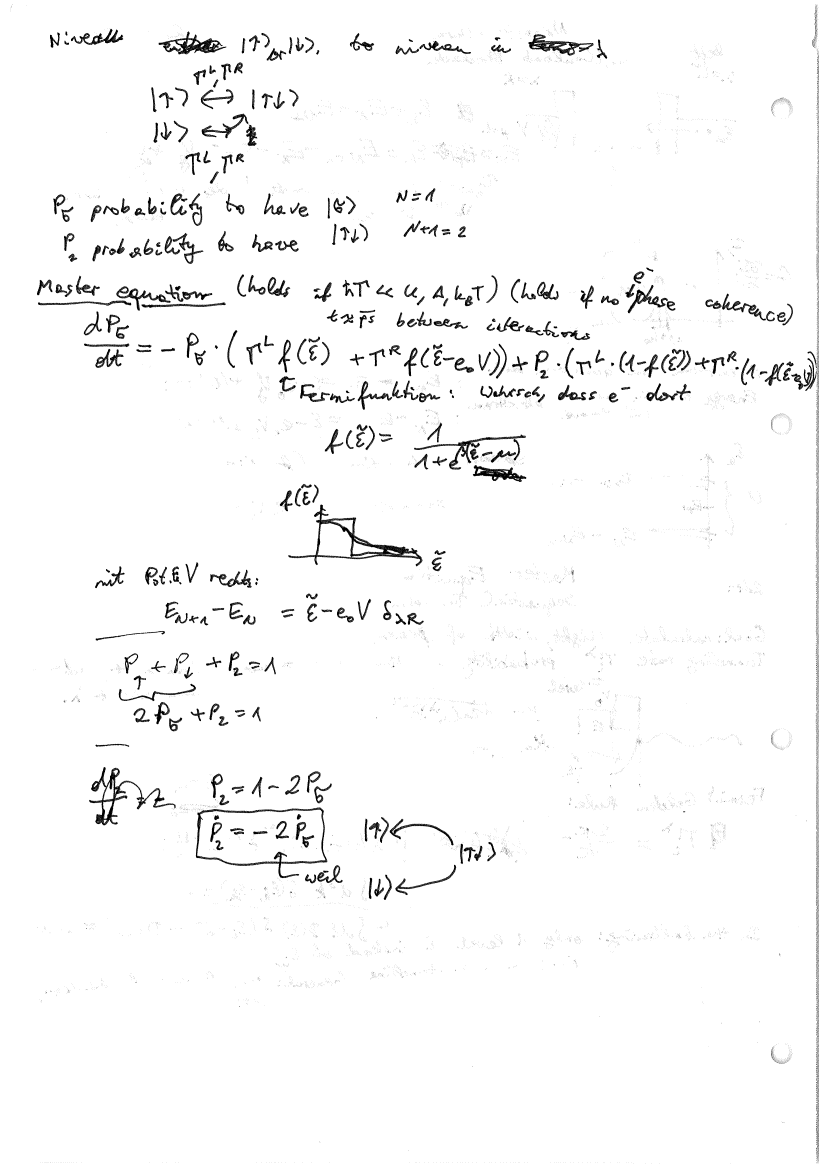 |↑⟩ or |↓⟩, to niveau in λ
Γᴸ, Γᴿ
|↑⟩ ↔ |↑↓⟩
|↓⟩ ↔
Γᴸ, Γᴿ
P_σ probability to have |σ⟩ N=1
P₂ probability to have |↑↓⟩ N+1=2
Master equation (holds if ħΓ ≪ U, Δ, k_BT) (holds if no e⁻ phase coherence)
between interactions
dP_σ/dt = - P_σ · (Γᴸ f(ε̃) + Γᴿ f(ε̃-e₀V)) + P₂ · (Γᴸ · (1-f(ε̃)) + Γᴿ · (1-f(ε̃-e₀V))
↑ Fermifunktion: Wahrsch, dass e⁻ dort
f(ε̃) = 1/(1+e^{β(ε̃-μ)})
f(ε̃)
ε̃
mit Pot. V rechts:
E_{N+1} - E_N = ε̃ - e₀V δ_{λR}
P_↑ + P_↓ + P₂ = 1
2P_σ + P₂ = 1
P₂ = 1 - 2P_σ
Ṗ₂ = - 2Ṗ_σ
weil
|↑⟩
|↑↓⟩
|↓⟩